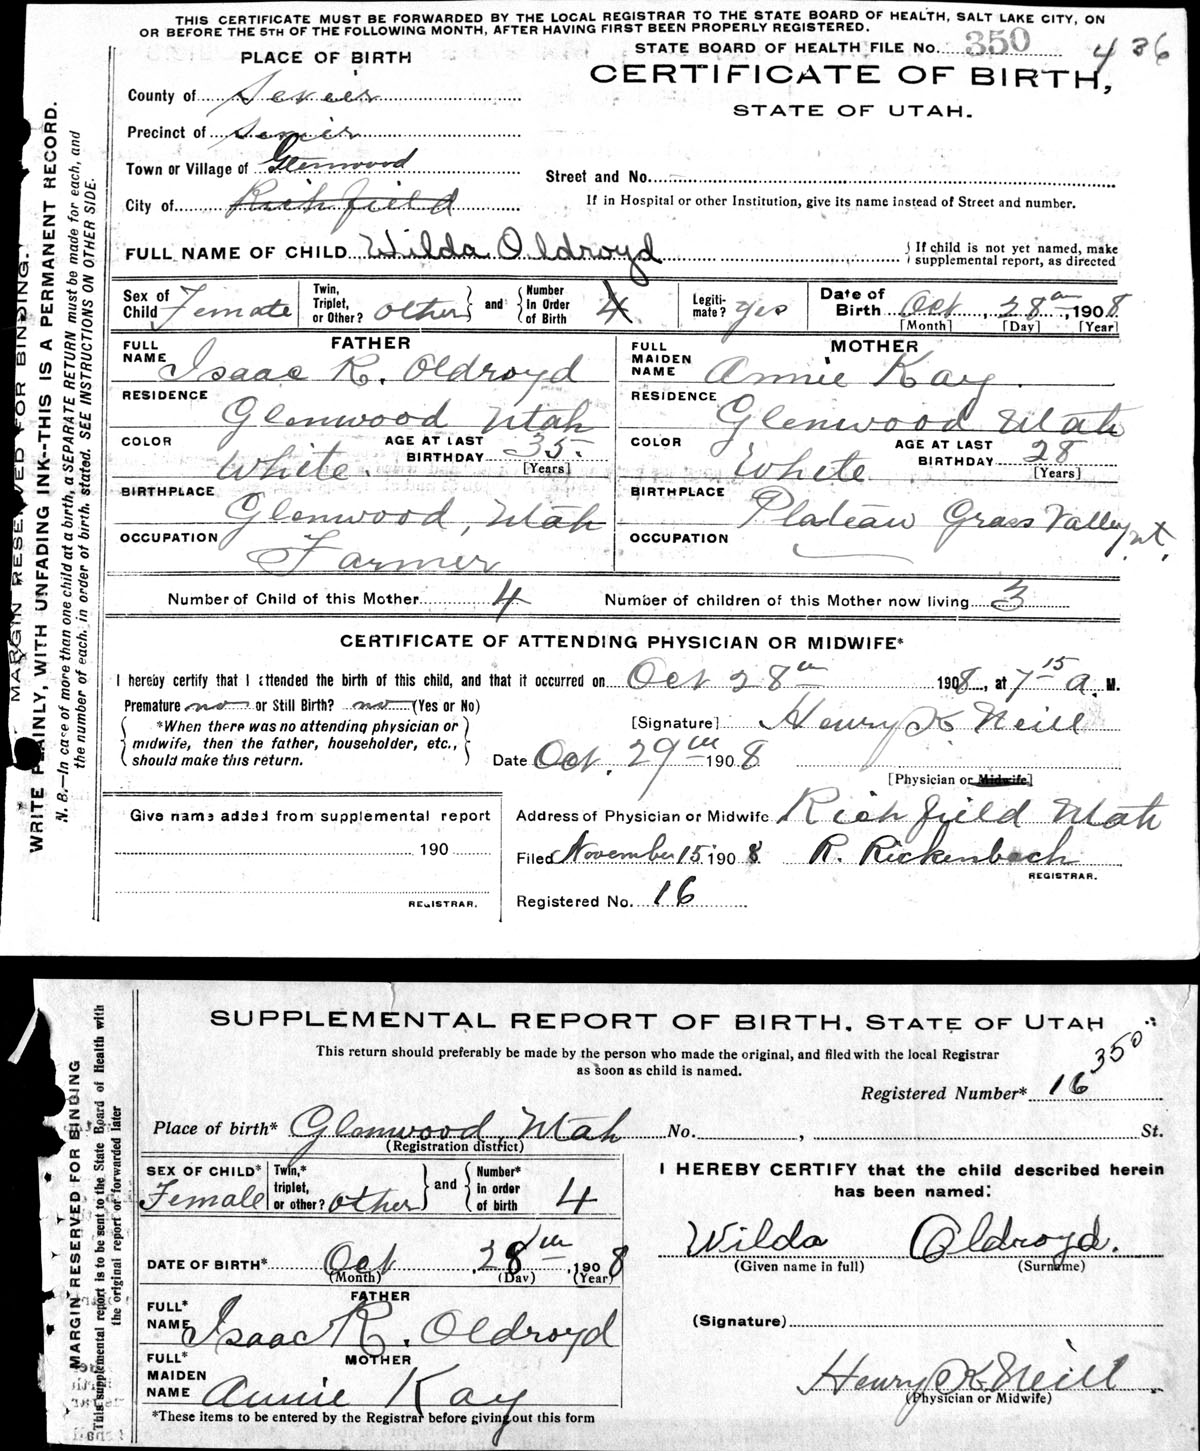 THIS CERTIFICATE MUST BE FORWARDED BY THE LOCAL REGISTRAR TO THE STATE BOARD OF HEALTH, SALT LAKE CITY, ON
OR BEFORE THE 5TH OF THE FOLLOWING MONTH, AFTER HAVING FIRST BEEN PROPERLY REGISTERED.
STATE BOARD OF HEALTH FILE No. 350 436
PLACE OF BIRTH
CERTIFICATE OF BIRTH,
STATE OF UTAH.
County of Sevier
Precinct of Sevier
Town or Village of Glenwood
Street and No.
City of Richfield
If in Hospital or other Institution, give its name instead of Street and number.
FULL NAME OF CHILD Wilda Oldroyd
If child is not yet named, make supplemental report, as directed
Sex of Child Female
Twin, Triplet, or Other? other and Number In Order of Birth 4
Legitimate? yes
Date of Birth Oct 28th, 1908
[Month] [Day] [Year]
FATHER
FULL NAME Isaac R. Oldroyd
MOTHER
FULL MAIDEN NAME Annie Kay
RESIDENCE Glenwood Utah
RESIDENCE Glenwood Utah
COLOR White. AGE AT LAST BIRTHDAY 35. [Years]
COLOR White AGE AT LAST BIRTHDAY 28 [Years]
BIRTHPLACE Glenwood, Utah
BIRTHPLACE Plateau Grass Valley, Ut.
OCCUPATION Farmer
OCCUPATION
Number of Child of this Mother 4 Number of children of this Mother now living 3
CERTIFICATE OF ATTENDING PHYSICIAN OR MIDWIFE*
I hereby certify that I attended the birth of this child, and that it occurred on Oct 28th 1908, at 7 15 A. M.
Premature no or Still Birth? no (Yes or No)
*When there was no attending physician or midwife, then the father, householder, etc., should make this return.
[Signature] Henry K Neill
Date Oct. 29th 1908
[Physician or Midwife]
Give name added from supplemental report
190
REGISTRAR.
Address of Physician or Midwife Richfield Utah
Filed November 15 1908 R. Rickenbach
REGISTRAR.
Registered No. 16
MARGIN RESERVED FOR BINDING.
WRITE PLAINLY, WITH UNFADING INK--THIS IS A PERMANENT RECORD.
N. B.—In case of more than one child at a birth, a SEPARATE RETURN must be made for each, and
the number of each, in order of birth, stated. SEE INSTRUCTIONS ON OTHER SIDE.
SUPPLEMENTAL REPORT OF BIRTH, STATE OF UTAH
This return should preferably be made by the person who made the original, and filed with the local Registrar
as soon as child is named.
350
Registered Number* 16
Place of birth* Glenwood, Utah No. , St.
(Registration district)
SEX OF CHILD* Female
Twin,* triplet, or other? other and Number* in order of birth 4
I HEREBY CERTIFY that the child described herein
has been named:
Wilda Oldroyd.
(Given name in full) (Surname)
DATE OF BIRTH* Oct 28th, 1908
(Month) (Day) (Year)
FATHER
FULL* NAME Isaac R. Oldroyd
(Signature)
MOTHER
FULL* MAIDEN NAME Annie Kay
Henry K Neill
(Physician or Midwife)
*These items to be entered by the Registrar before giving out this form
MARGIN RESERVED FOR BINDING
This supplemental report is to be sent to the State Board of Health with
the original report or forwarded later